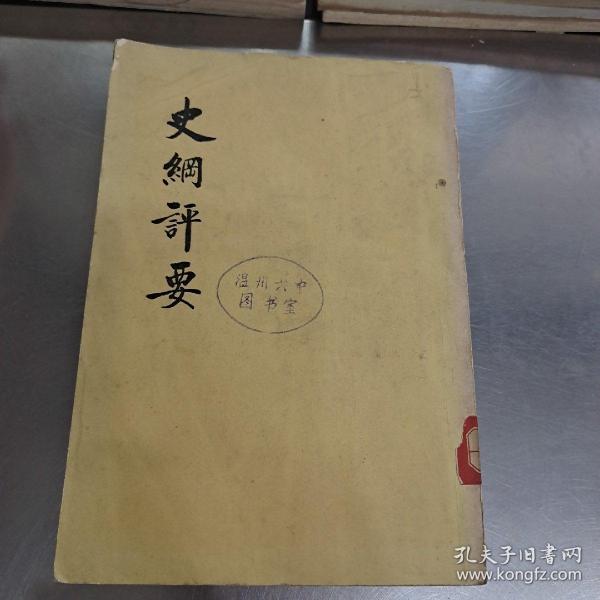 史綱評要
温州六中
图书室
孔夫子旧书网
www.kongfz.com